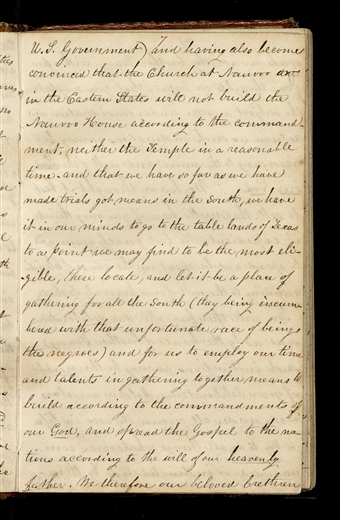 U. S. Government) and having also become
convinced that the Church at Nauvoo or
in the Eastern States will not build the
Nauvoo House according to the command-
ment, neither the Temple in a reasonable
time. and that we have so far as we have
made trials got means in the South, we have
it in our minds to go to the table lands of Texas
to a point we may find to be the most eli-
gible, there locate, and let it be a place of
gathering for all the South (they being incum-
berd with that unfortunate race of beings
the negroes) and for us to employ our time
and talents in gathering together means to
build according to the commandments of
our God, and spread the Gospel to the na-
tions according to the will of our heavenly
father. We therefore our beloved brethren